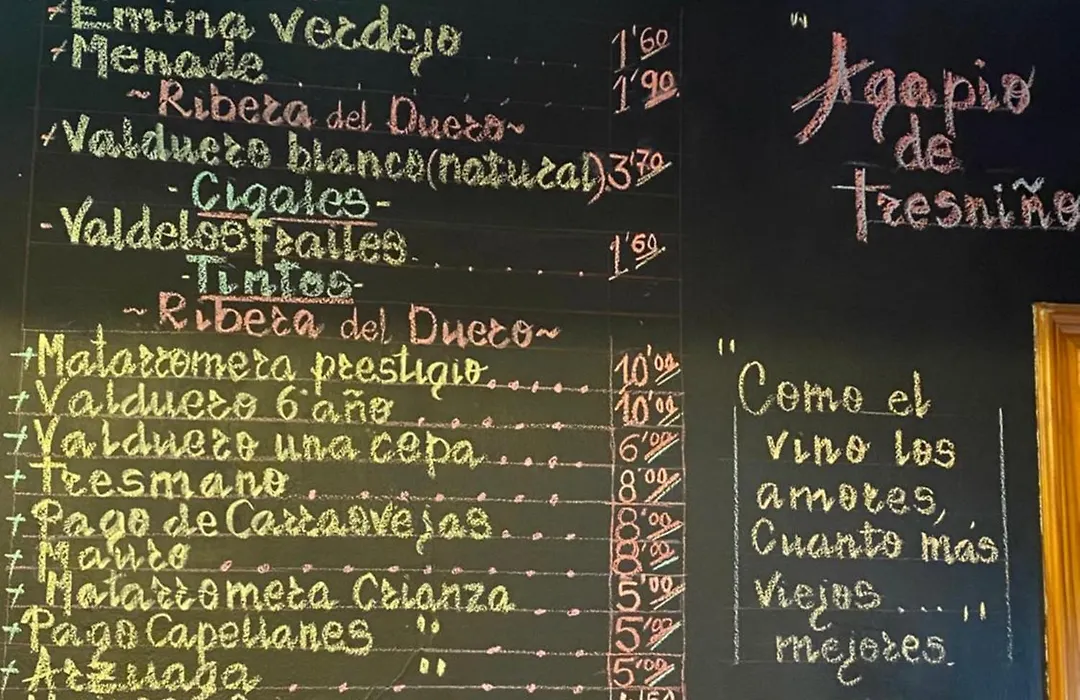 Emina Verdejo ........ 1'60
Menade ........ 1'90
~Ribera del Duero~
Valduero blanco (natural). 3'70
-Cigales-
-Valdelosfrailes ........ 1'60
-Tintos-
~Ribera del Duero~
+Matarromera prestigio ...... 10'00
+Valduero 6º año ....... 10'00
+Valduero una cepa ..... 6'00
+Tresmano ........ 8'00
+Pago de Carraovejas ... 8'00
+Mauro ............ 8'00
+Matarromera Crianza ... 5'00
+Pago Capellanes " .... 5'00
+Arzuaga " ..... 5'00
"Agapio
de
Tresniño
"Como el
vino los
amores,
Cuanto más
viejos ...."
mejores.